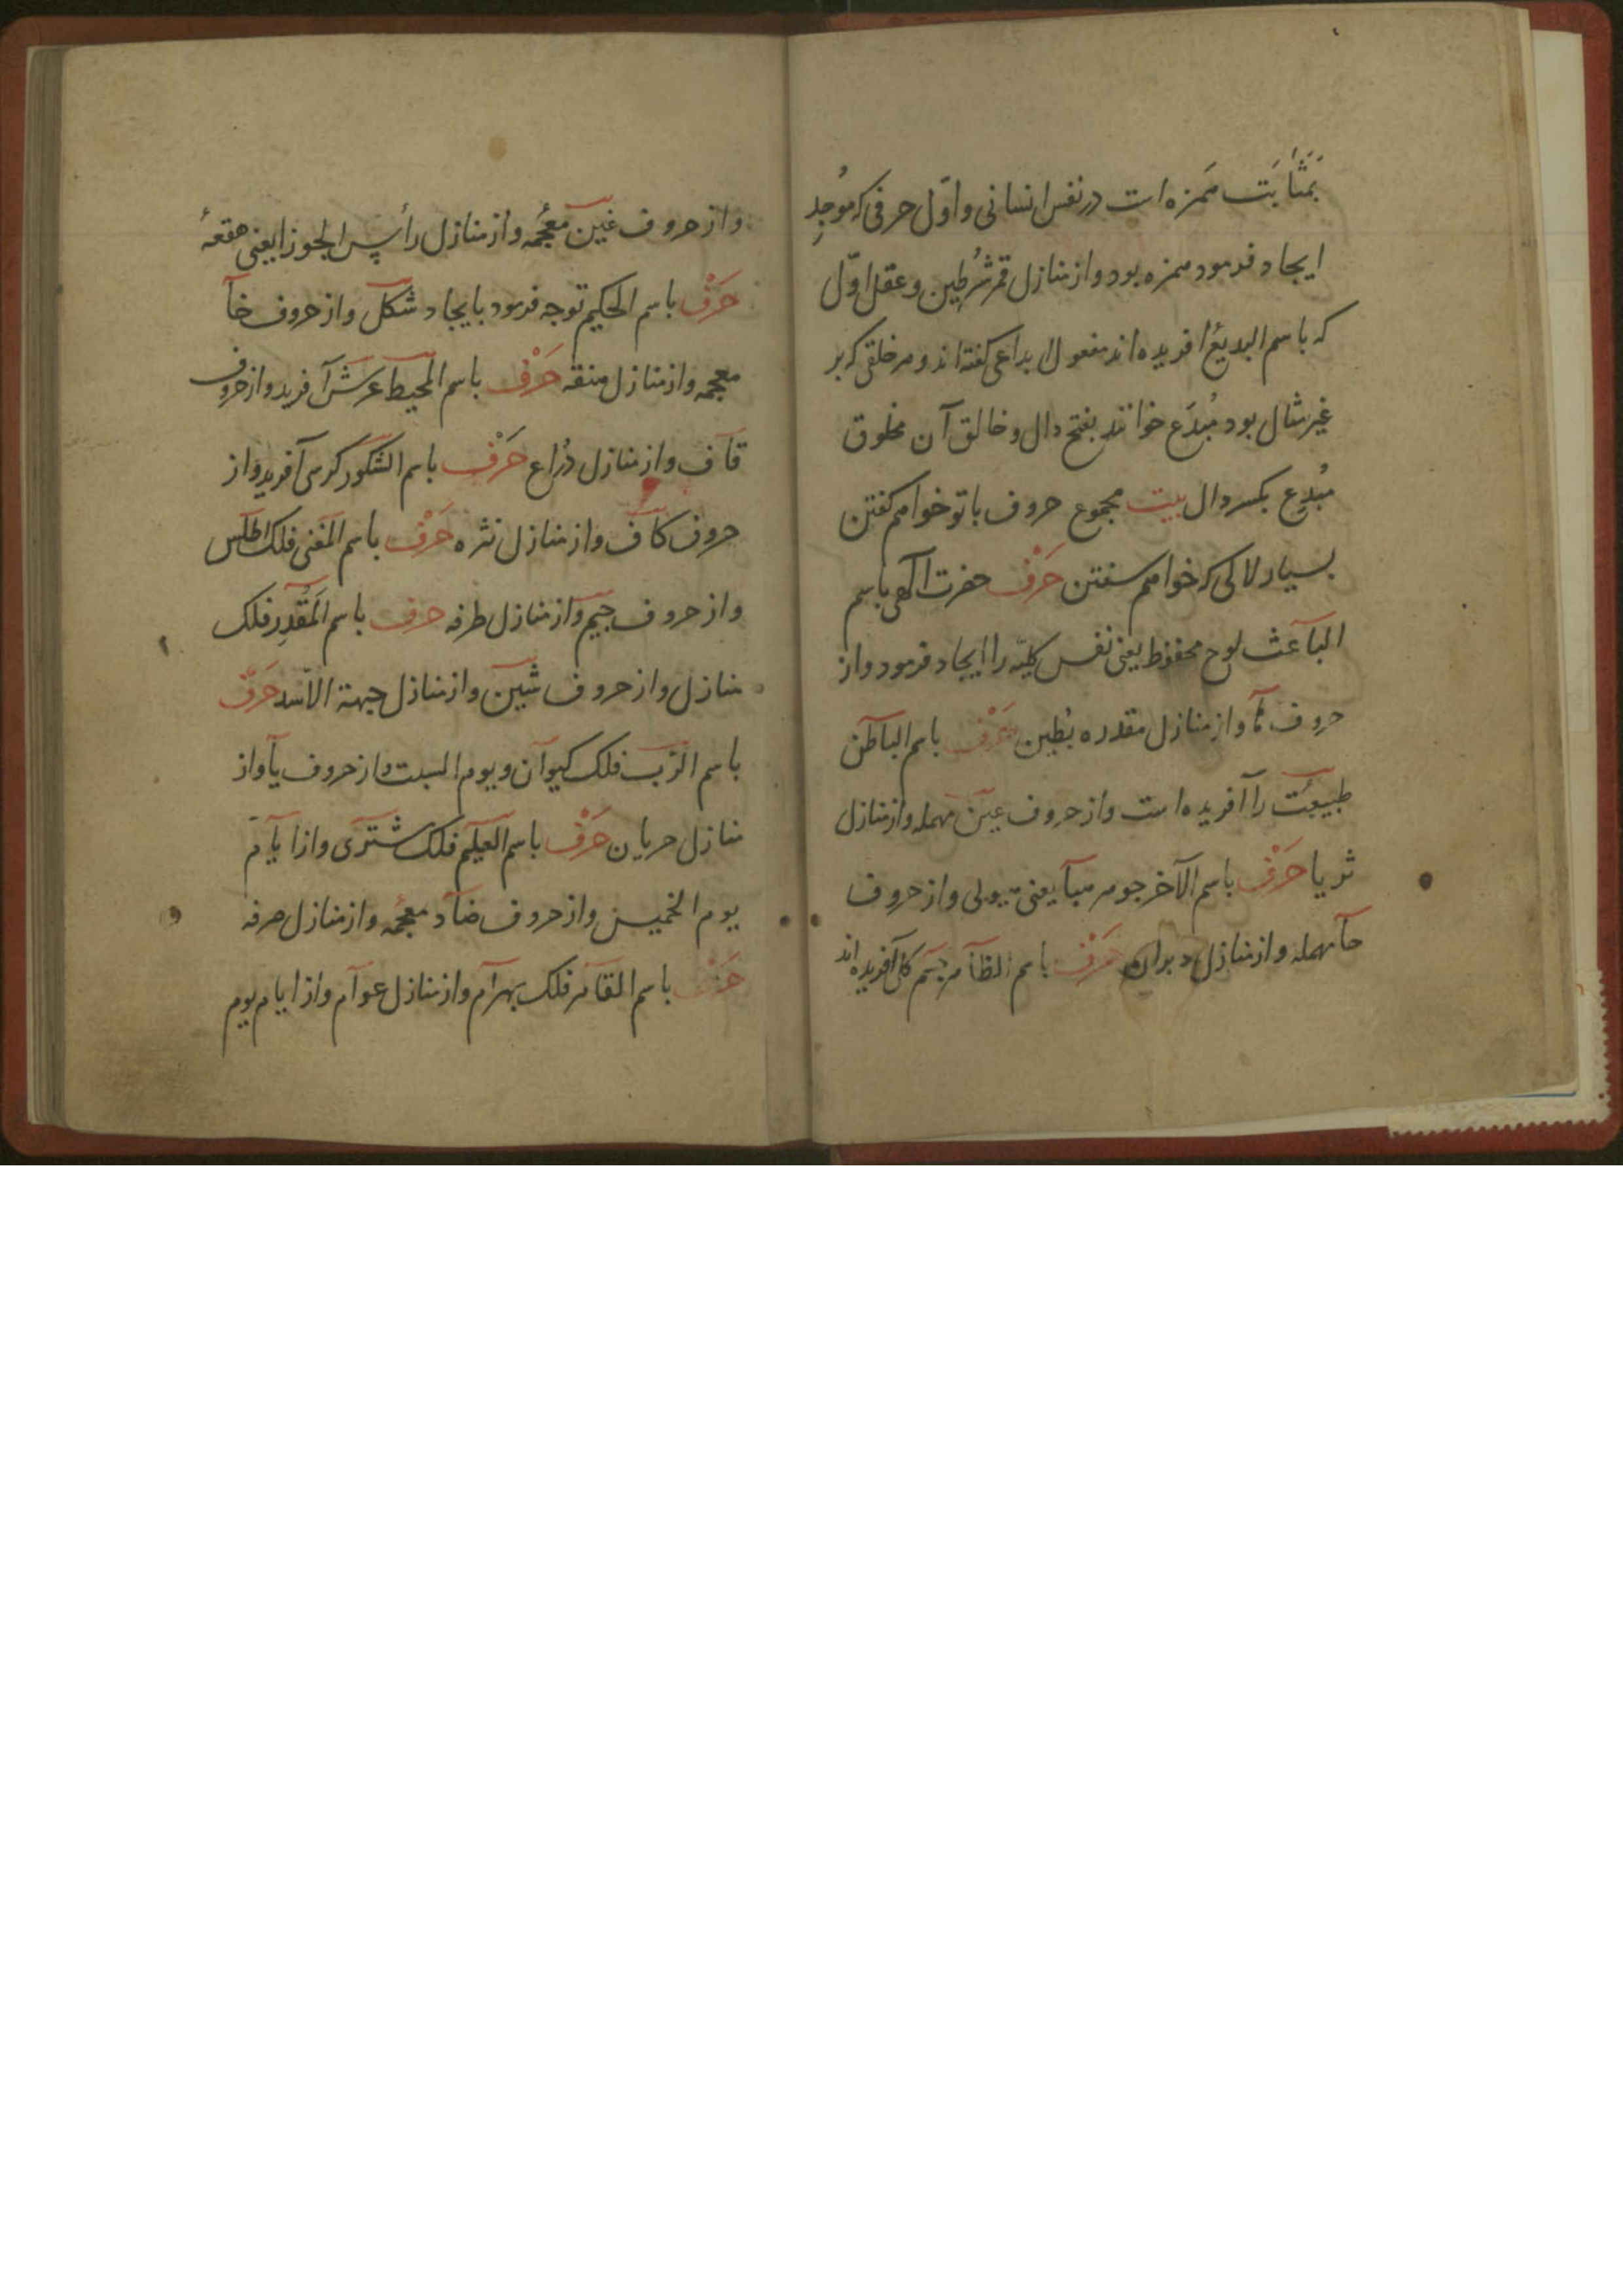 بمثابت همزه است در نفس انسانی و اوّل حرفی که موُجِدِ
ایجاد فرمود همزه بود و از منازل قمر شُرطین و عقل اوّل
که باسم البدیعُ افریده اند مفعول ابداعی گفته اند و هر خلقی که بر
غیر مثال بود مُبْدَع خوانند بفتح دال و خالق آن مخلوق
مُبْدِع بکسر دال بیت مجموع حروف با تو خواهم کفتن
بسیار لالی که خواهم سفتن حَرْف حضرت الهی باسم
الباعث لوح محفوظ یعنی نفس کلیّه را ایجاد فرمود و از
حروف ها و از منازل مقدره بُطین حَرْف باسم الباطن
طبیعت را آفریده است و از حروف عین مهمله و از منازل
ثریا حَرْف باسم الآخر جوهر هبا یعنی هیولی و از حروف
حا مهمله و از منازل دبران حَرْف باسم الظاهر جسم کل آفریده اند
و از حروف غین معُجمه و از منازل رأس الجوزا یعنی هقعهٔ
حَرْف باسم الحکیم توجه فرمود بایجاد شکل و از حروف خا
معجمه و از منازل هنقه حَرْف باسم المحیط عرش آفرید و از حروف
قاف و از منازل ذُراع حَرْف باسم الشکور کرسی آفرید و از
حروف کاف و از منازل نثره حَرْف باسم الغنی فلک اطلس
و از حروف جیم و از منازل طرفه حرف باسم المُقَدِر فلک
منازل و از حروف شین و از منازل جبهة الاسد حَرْف
باسم الرّب فلک کیوان و یوم السبت و از حروف یا و از
منازل حریان حَرْف باسم العلیم فلک مشتری و از ایام
یوم الخمیس و از حروف ضاد معجُمه و از منازل صرفه
حَرْف باسم القاهر فلک بهرام و از منازل عوام و از ایام یوم